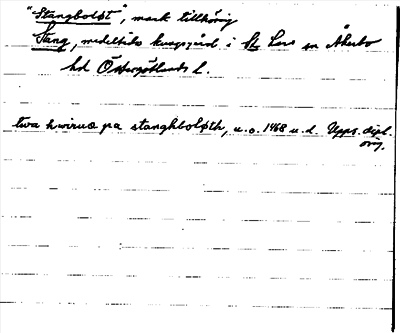 "Stangboløt", mark tillhörig
Stång, medeltida kungsgård i St Lars sn Åkerbo
hd Östergötlands l.
twa hwirwa pa stanghboløth, u.o. 1468 u.d. Upps. dipl.
orig.